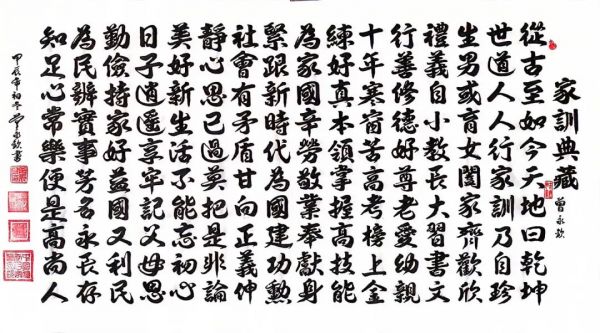 家訓典藏
曾永欽
從古至如今天地曰乾坤
世道人人行家訓乃自珍
生男或育女闔家齊歡欣
禮義自小教長大習書文
行善修德好尊老愛幼親
十年寒窗苦高考榜上金
練好真本領掌握高技能
為家國辛勞敬業奉獻身
緊跟新時代為國建功勳
社會有矛盾甘向正義伸
靜心思己過莫把是非論
美好新生活不能忘初心
日子逍遙享牢記父母恩
勤儉持家好益國又利民
為民辦實事芳名永長存
知足心常樂便是高尚人
甲辰年初冬曾永欽書